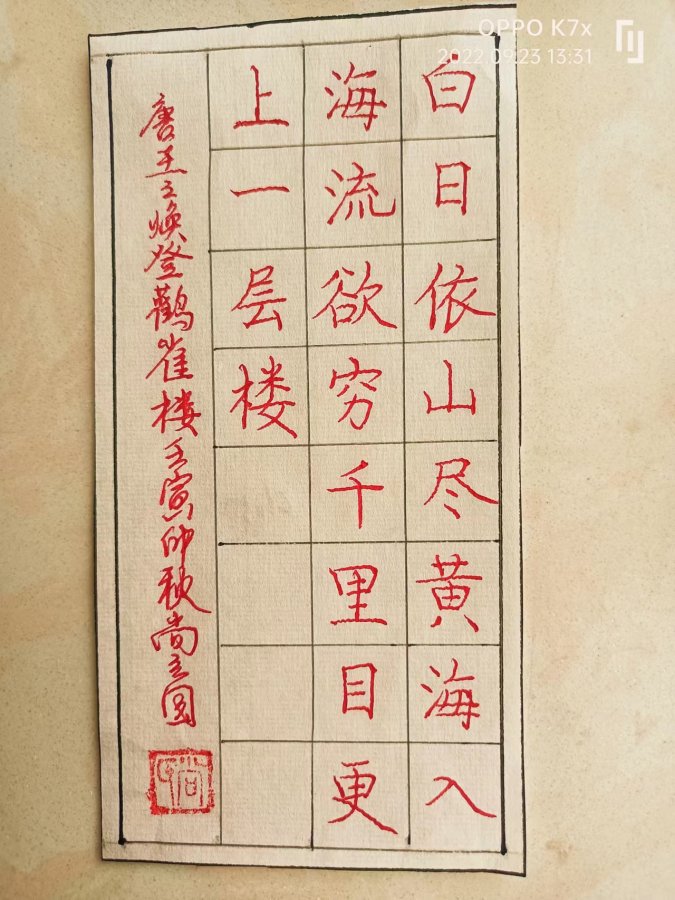 OPPO K7x
2022.09.23 13:31
白日依山尽黄海入
海流欲穷千里目更
上一层楼
唐王之焕登鹳雀楼壬寅仲秋尚立